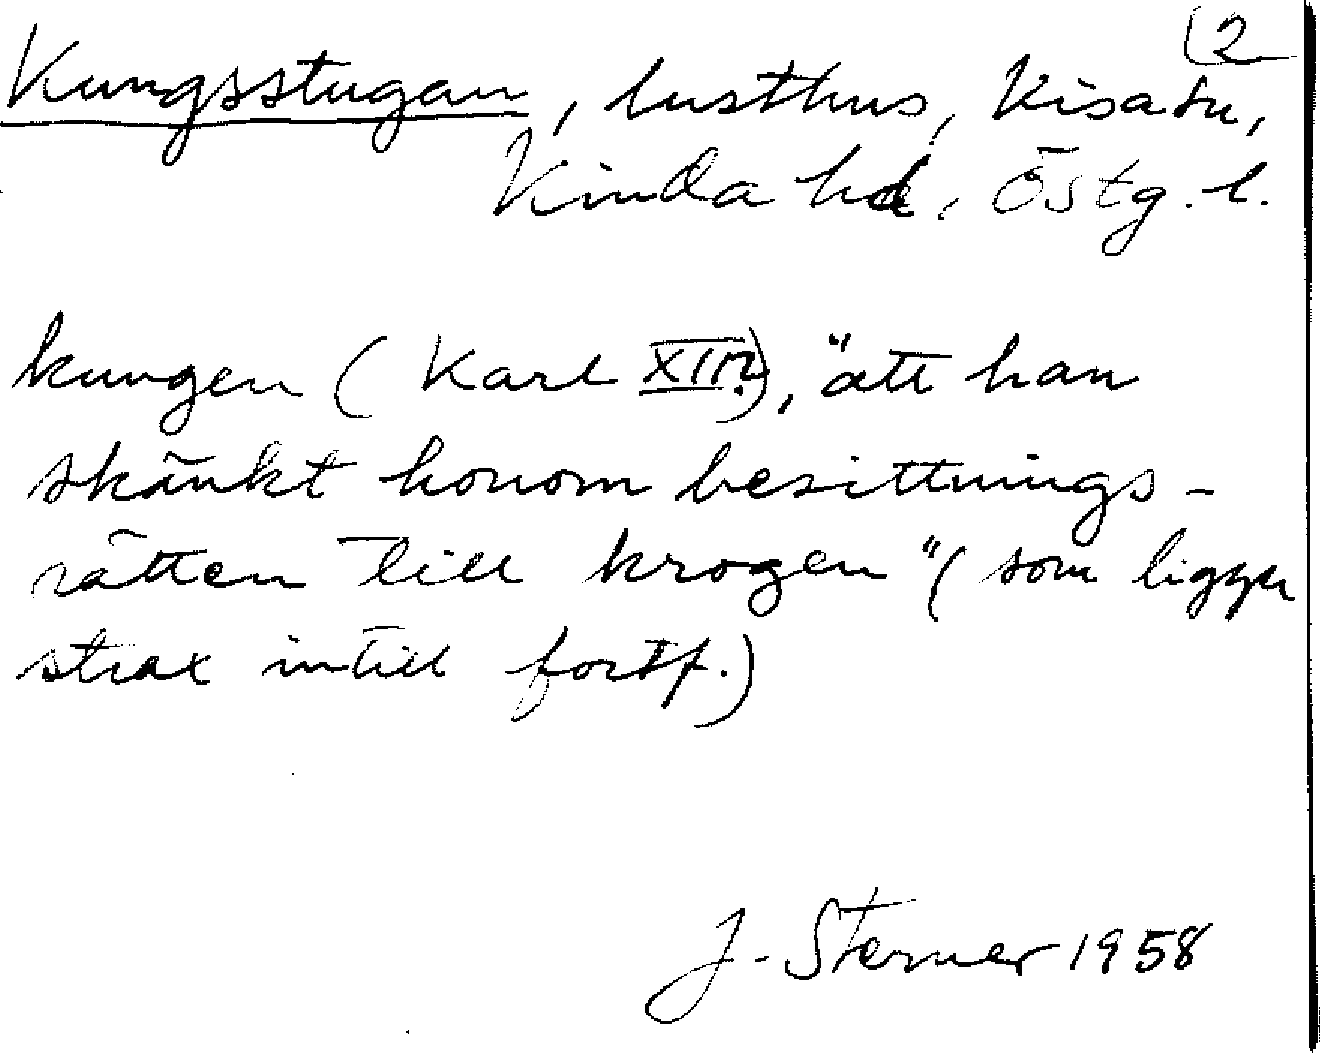 (2
Kungsstugan, lusthus, Kisa sn,
Kinda hd, Östg. l.
kungen (Karl XII?), "att han
skänkt honom besittnings-
rätten till krogen" (som ligger
strax intill fortf.)
J. Sterner 1958